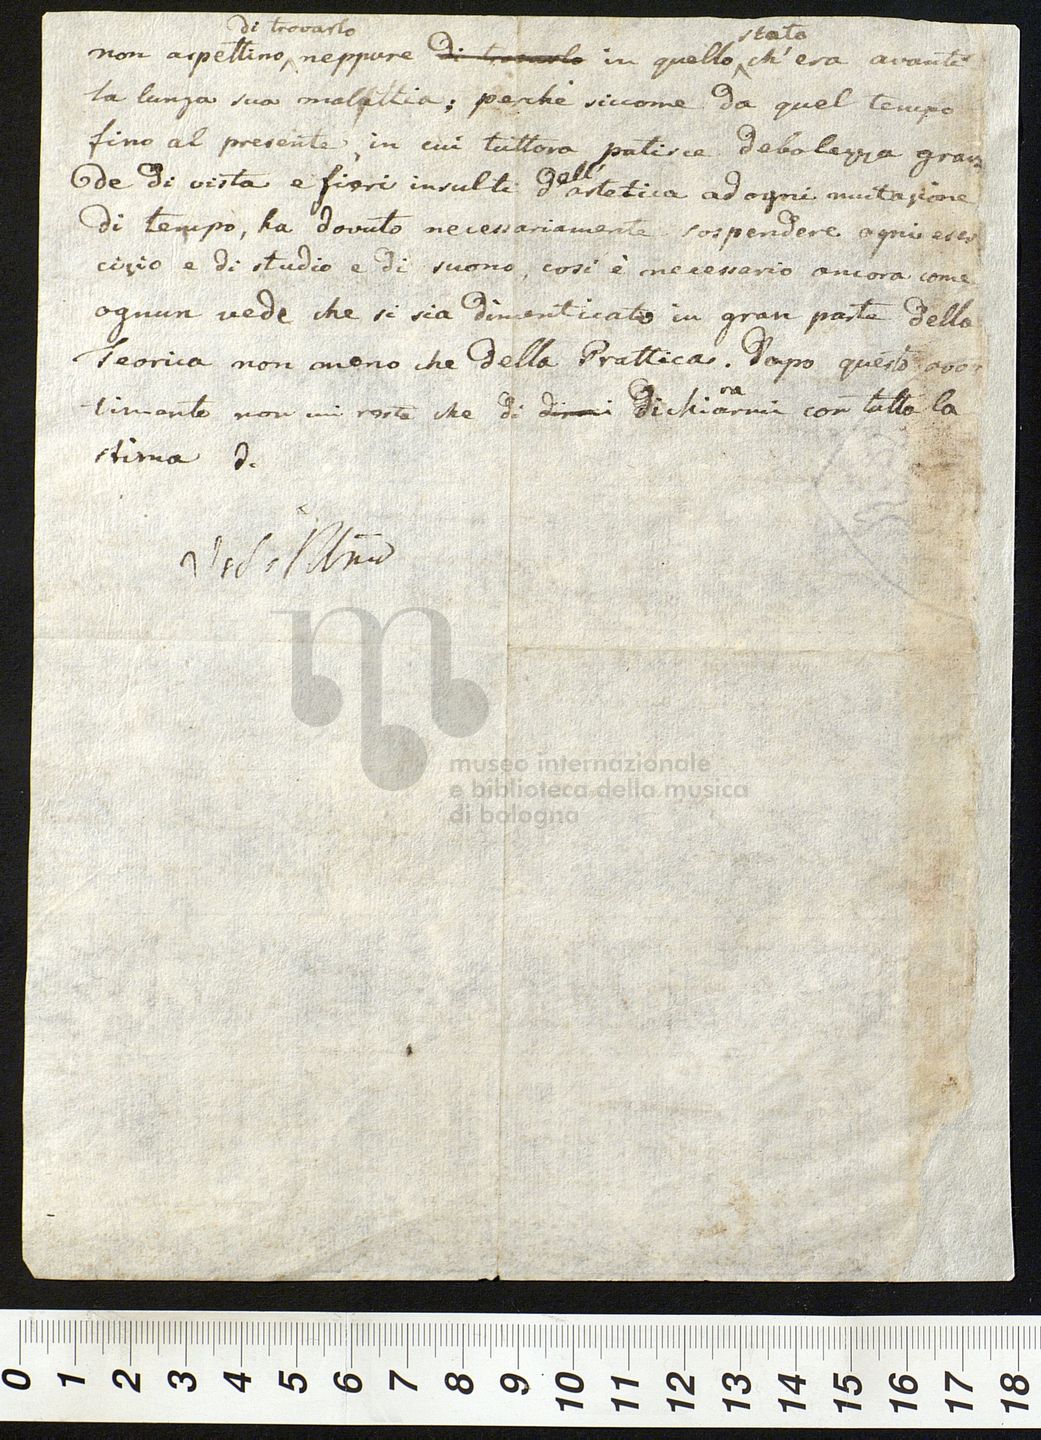 di trovarlo stato
non aspettino, neppure di trovarlo in quello ch'era avanti
la lunga sua malattia; perchè siccome da quel tempo
fino al presente, in cui tuttora patisce debolezza gran
de di vista e fieri insulti dell'artetica ad ogni mutazione
di tempo, ha dovuto necessariamente sospendere ogni eser
cizio e di studio e di suono, così è necessario ancora come
ognun vede che si sia dimenticato in gran parte della
Teorica non meno che della Prattica. Dopo questo avver
timento non mi resta che di dichiararmi con tutta la
stima d.
museo internazionale
e biblioteca della musica
di bologna
0 1 2 3 4 5 6 7 8 9 10 11 12 13 14 15 16 17 18